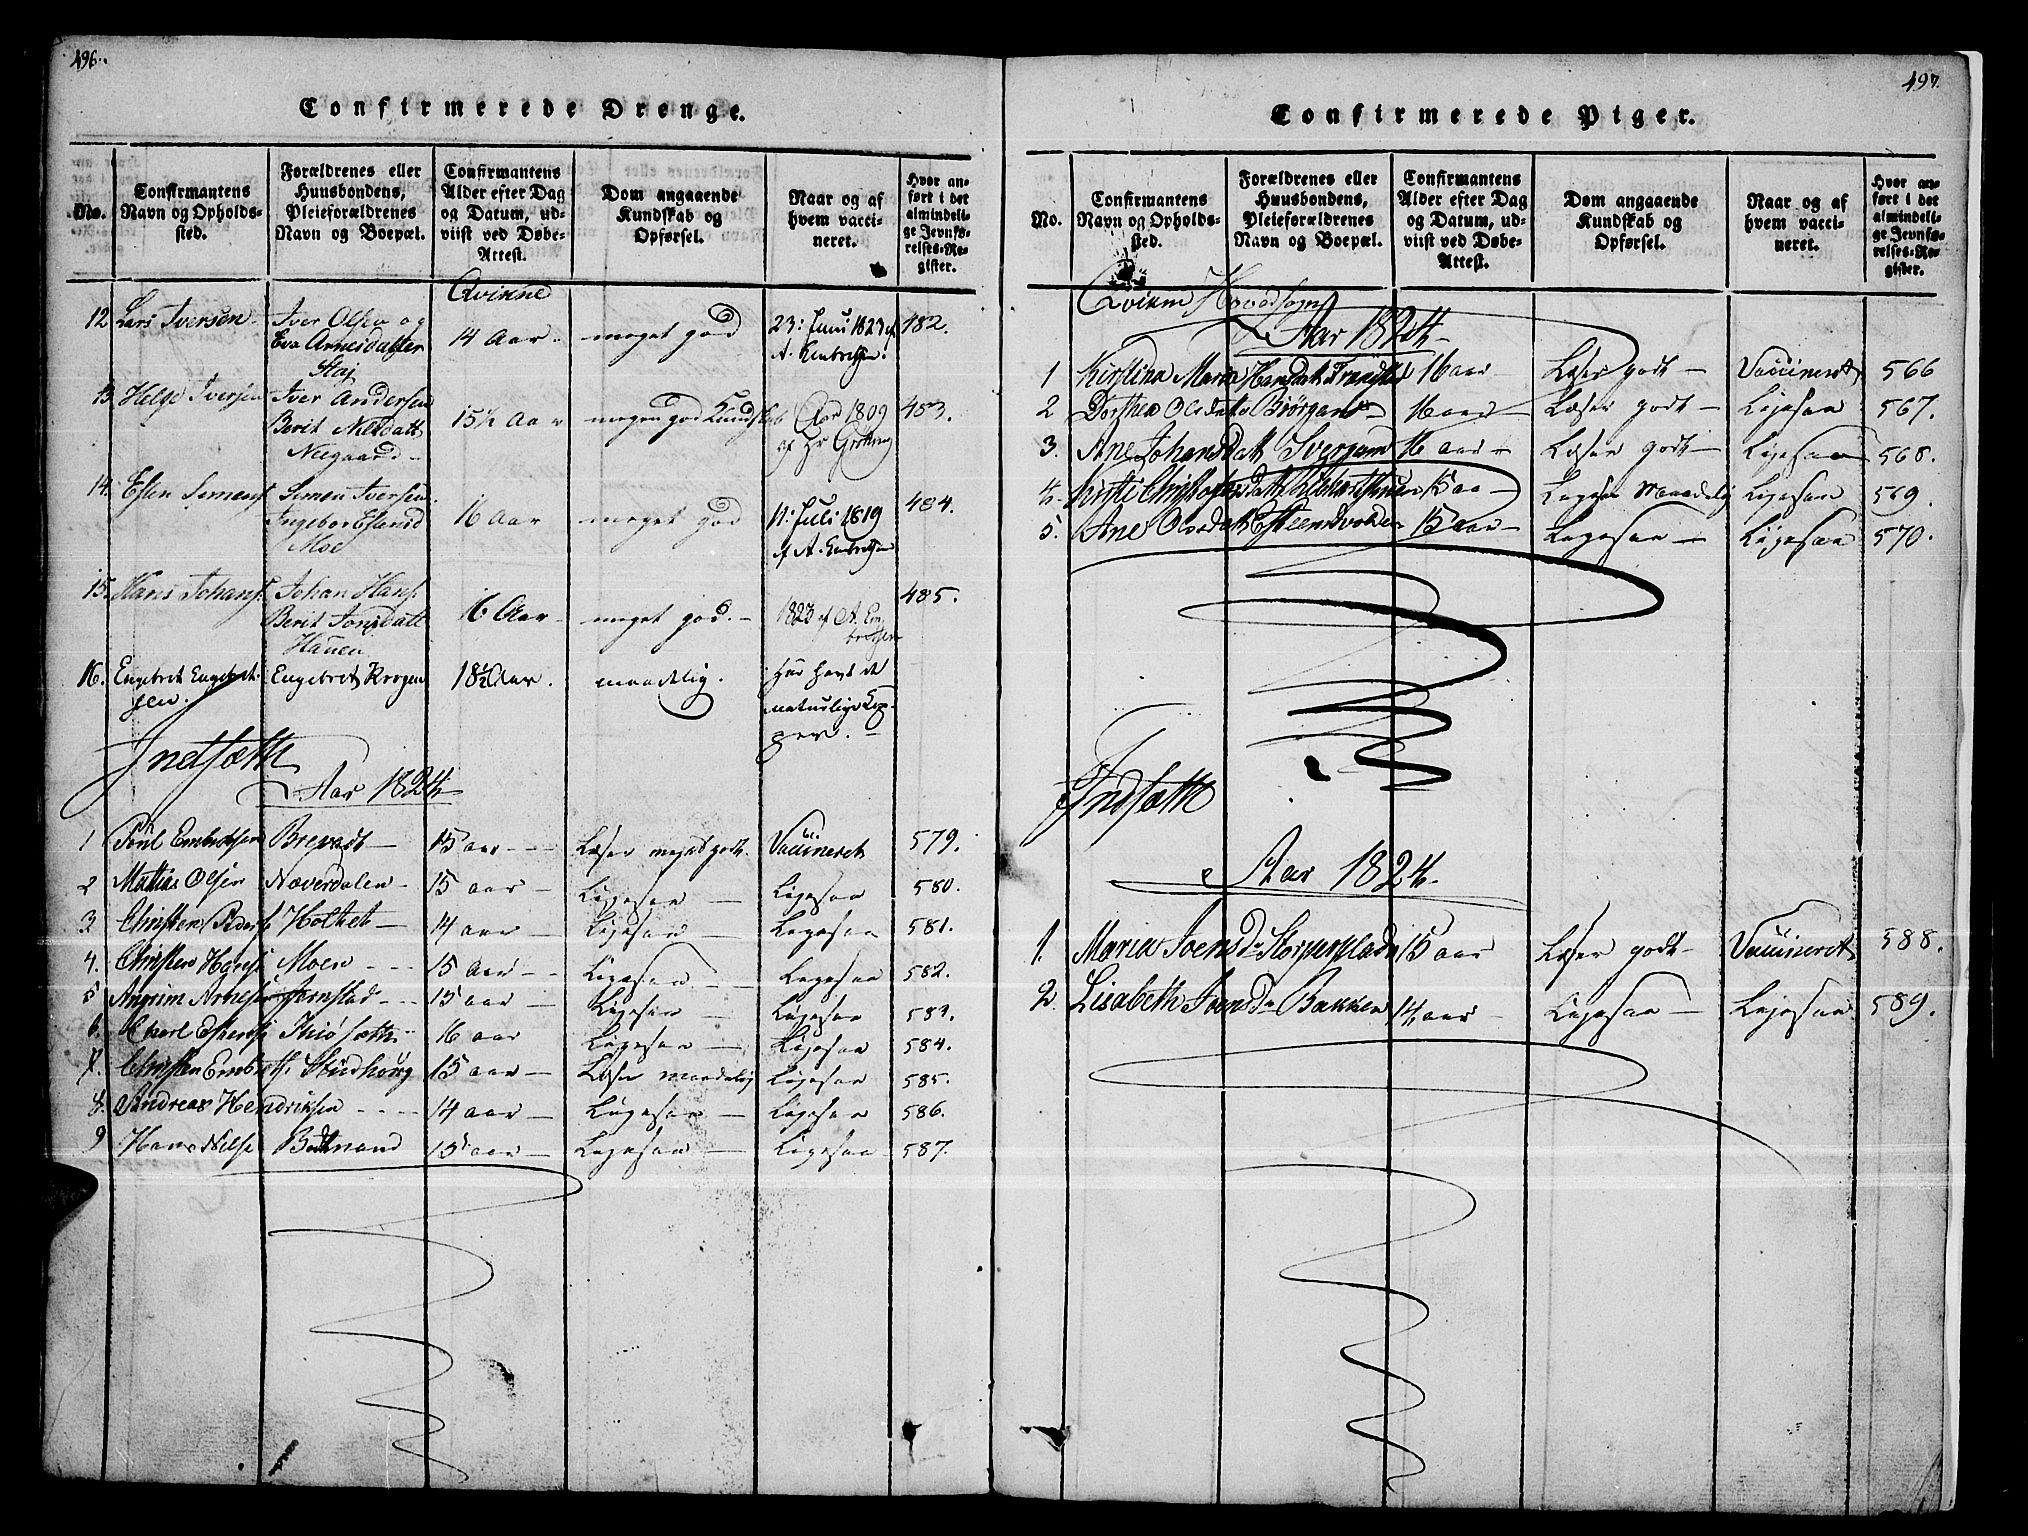 496.
Confirmerede Drenge.
No.
Confirmantens Navn og Opholds-sted.
Forældrenes eller Huusbondens, Pleieforældrenes Navn og Boepæl.
Confirmantens Alder efter Dag og Datum, ud-viist ved Døbe-Attest.
Dom angaaende Kundskab og Opførsel.
Naar og af hvem vacci-neret.
Hvor an-ført i det almindeli-ge Jevnfø-relses-Re-gister.
Qvikne
12 Lars Iversen Iver Olsen og 14 Aar moget god 23: Juni 1823 af 482.
Eva Arnesdatter A. Embretsen.
13 Helge Iversen Iver Andersen 15½ Aar god Kundskab Aar 1809 453.
Berit Nilsdatt af Hr
Neegaard
14. Esten Simens. Simen Iversen 16 Aar moget god 11: Juli 1819 484.
Ingebor
Moe af A. Embretsen
15. Hans Johans. Johan Hans. 16 Aar moget god. 1823 af A. Em- 485.
Berit Jonsdatt bretsen
Hauen
16. Engebret Engebret- Engebret Krogen 18½ Aar. maadelig. Har havt de
sen. naturlige Kop-
per.
Indsæth
Aar 1824
1 Poul Embretsen 15 aar Læser meget godt. Vaccineret 579.
2 Mattias Olsen Næverdalen 15 aar Ligesaa Ligesaa 580.
3 Christen Peders. Holtet 14 aar Ligesaa Ligesaa 581.
4. Christen Hans. Moen 15 Aar Ligesaa Ligesaa 582.
5 Arnesen 15 aar Ligesaa Ligesaa 583.
6. Estens. 16 aar Ligesaa Ligesaa 584.
7. Christen 15 aar Læser maadelig Ligesaa 585.
8. Andreas Hendriksen 14 aar Ligesaa Ligesaa 586.
9 Hans Nilse 15 aar Ligesaa Ligesaa 587.
497.
Confirmerede Piger.
No.
Confirmantens Navn og Opholds-sted.
Forældrenes eller Huusbondens, Pleieforældrenes Navn og Boepæl.
Confirmantens Alder efter Dag og Datum, ud-viist ved Døbe-Attest.
Dom angaaende Kundskab og Opførsel.
Naar og af hvem vacci-neret.
Hvor an-ført i det almindeli-ge Jevnfø-relses-Re-gister.
Qvikne Hovedsogn
Aar 1824
1 Kirstina Maria Hansdatt 16 aar Læser godt Vaccineret 566
2 Dorthea Olsdatt Biørgan 16 aar Læser godt Ligesaa 567.
3. Ane Johansdatt 16 aar Læser godt Ligesaa 568.
4. Kirsti Christophersdatt 15 aar Læser Maadelig Ligesaa 569
5. Ane Olsdatt 15 aar Ligesaa Ligesaa 570.
Indsæth
Aar 1824.
1. Maria Ivensd. 15 aar Læser godt Vaccineret 588.
2. Lisabeth Ivensd. Bakken 14 aar Ligesaa Ligesaa 589.